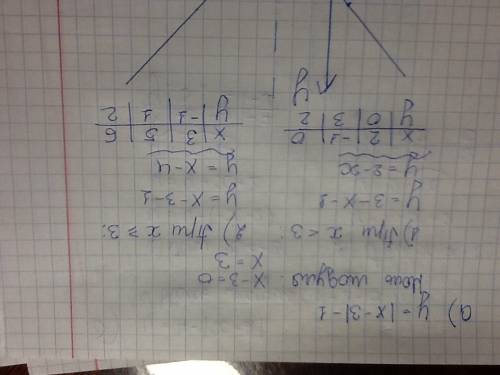 а) y = |x-3|-1
Ноль модуля: x-3=0
x=3
1) При x < 3: 2) При x ≥ 3:
y = 3-x-1 y = x-3-1
y = 2-x y = x-4
x | 2 | -1 | 0 x | 3 | 5 | 6
y | 0 | 3 | 2 y | -1 | 1 | 2
y